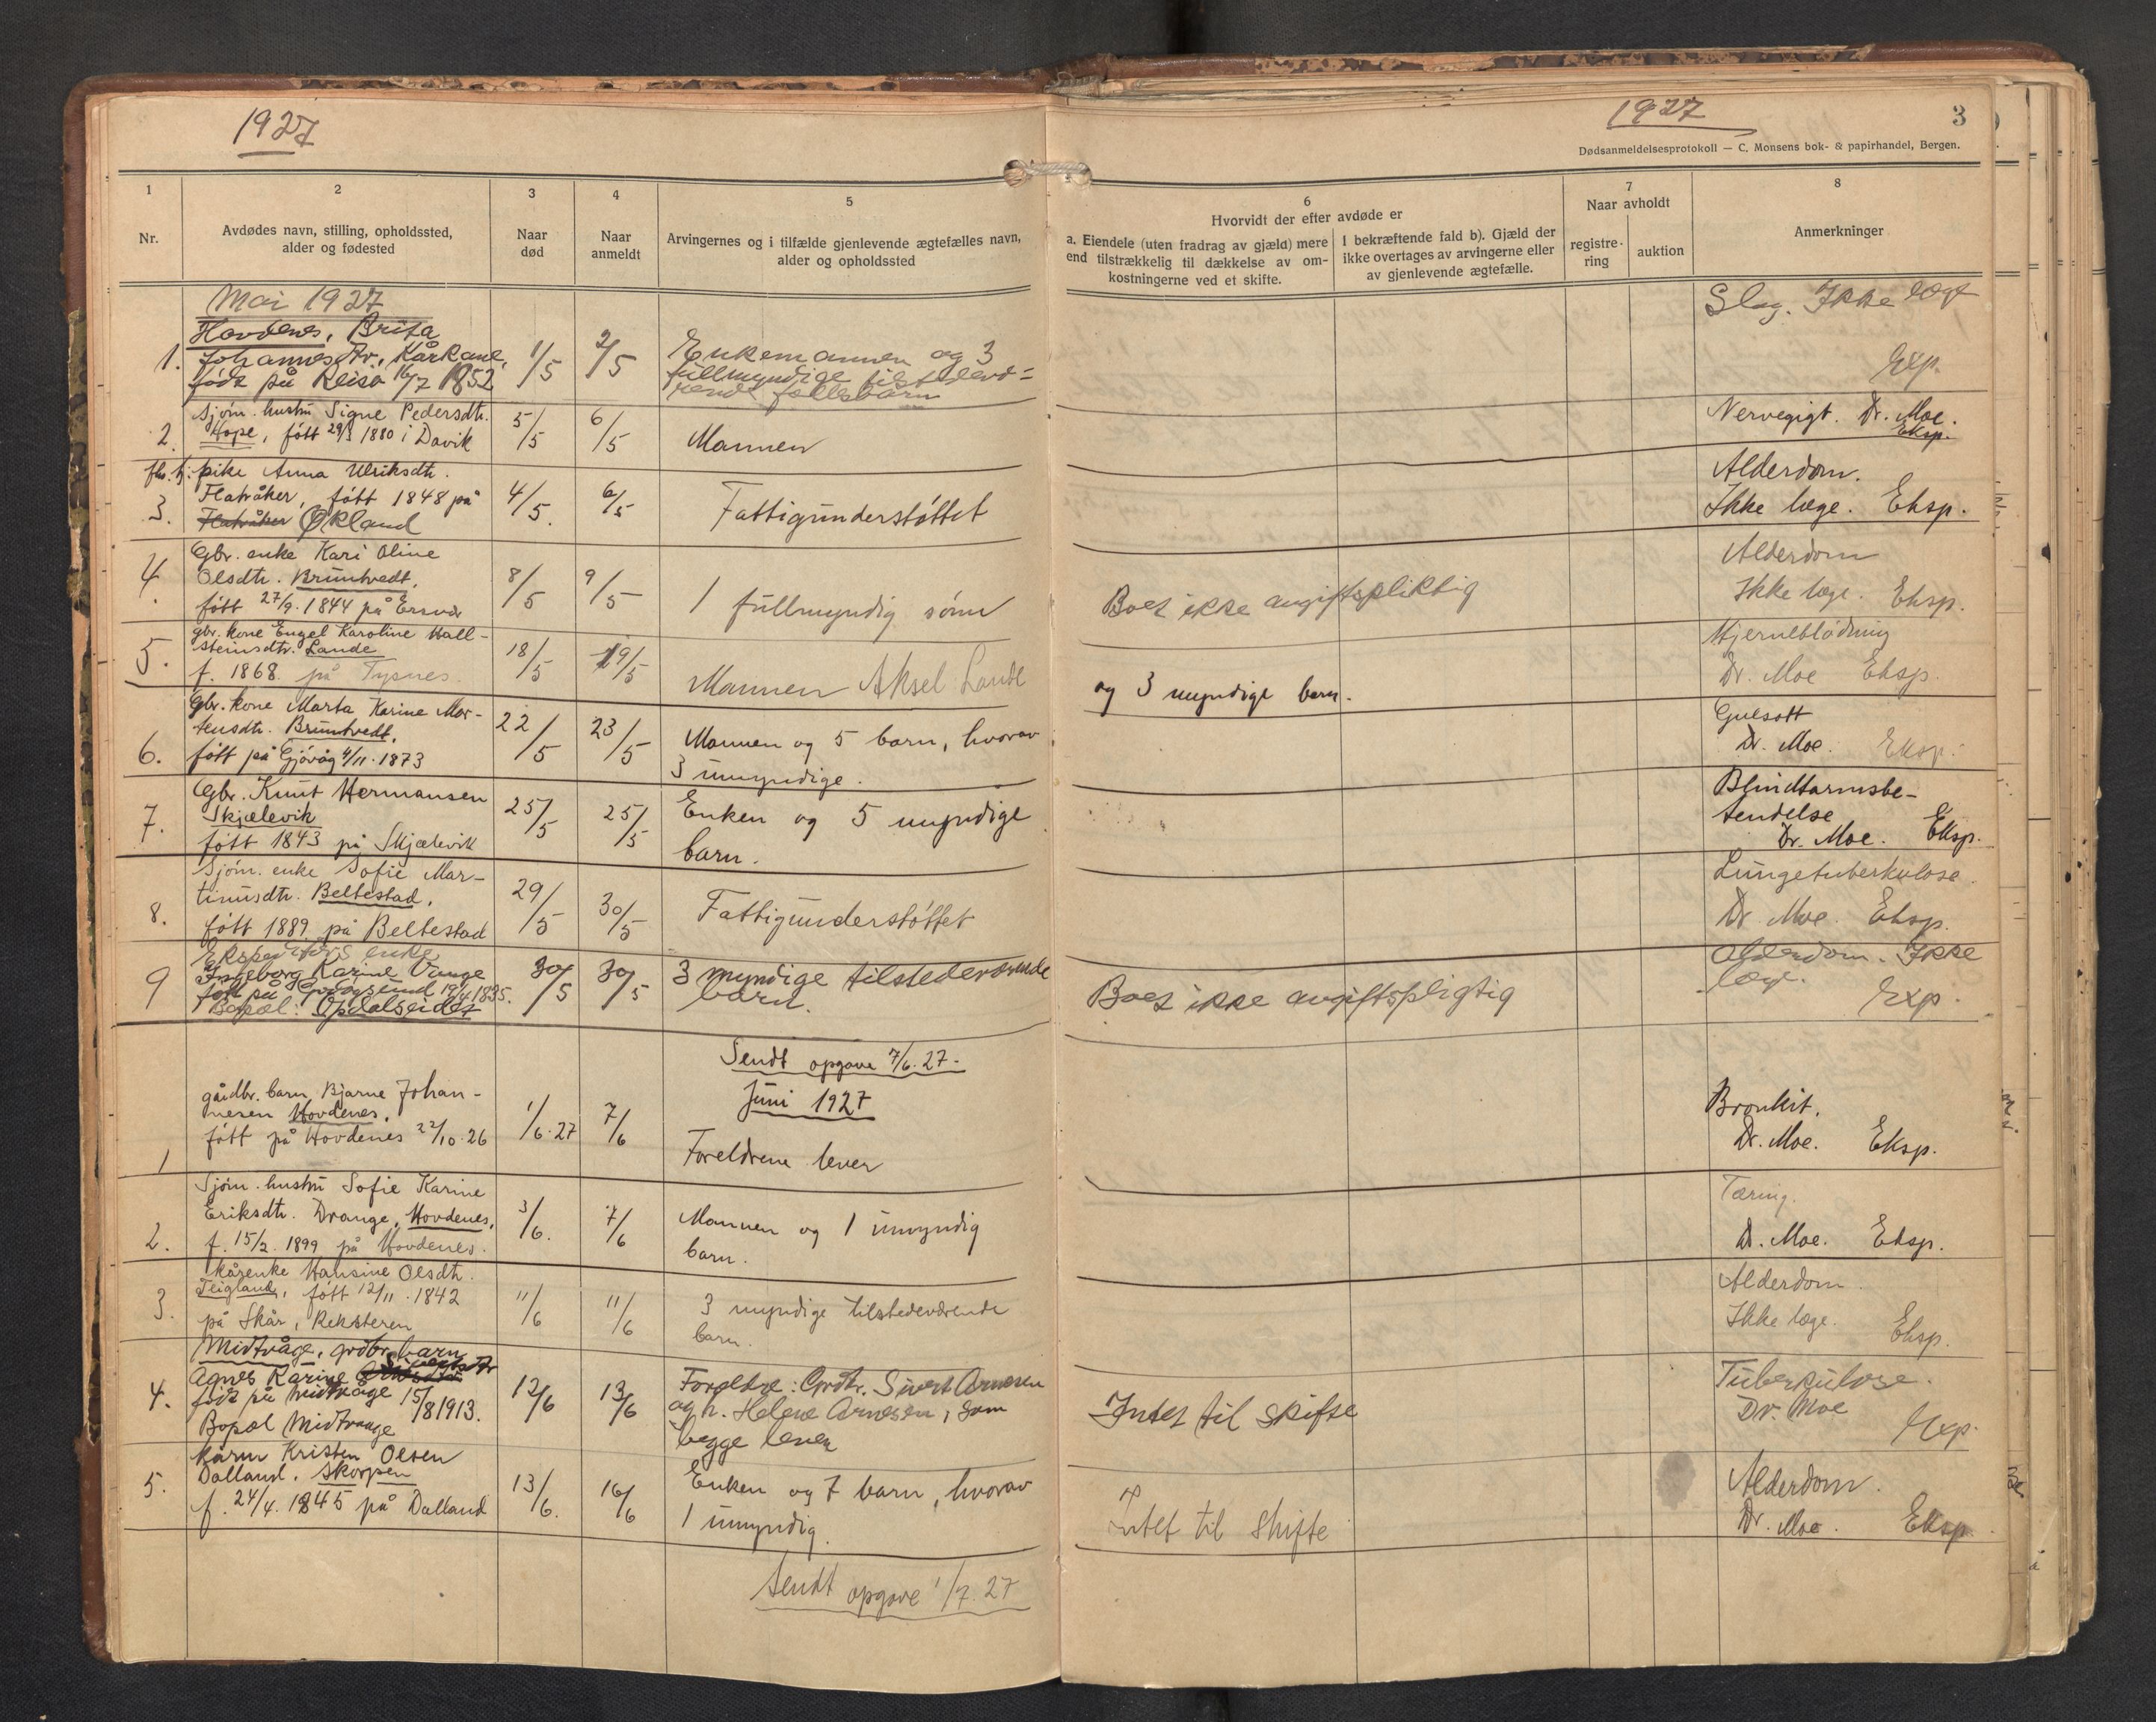 1927
1927
3
Dødsanmeldelsesprotokoll — C. Monsens bok- & papirhandel, Bergen.
1
2
3
4
5
6
7
8
Nr.
Avdødes navn, stilling, opholdssted,
alder og fødested
Naar
død
Naar
anmeldt
Arvingernes og i tilfælde gjenlevende ægtefælles navn,
alder og opholdssted
Hvorvidt der efter avdøde er
a. Eiendele (uten fradrag av gjæld) mere
end tilstrækkelig til dækkelse av om-
kostningerne ved et skifte.
I bekræftende fald b). Gjæld der
ikke overtages av arvingerne eller
av gjenlevende ægtefælle.
Naar avholdt
registre-
ring
auktion
Anmerkninger
Mai 1927
1.
Hovdenes, Brita
Johannesdtr, Kårkone,
født på Reisa 16/7 1852
1/5
2/5
Enkemannen og 3
fullmyndige tilstedevæ-
rende fellesbarn
Slag. Ikke læge
Exp.
2.
Sjøm. hustru Signe Pedersdtr.
Hope, født 29/3 1880 i Davik
5/5
6/5
Mannen
Nervegigt. Dr. Moe.
Eksp.
3.
fhv. tj. pike Anna Ulriksdtr.
Flatråker, født 1848 på
Flatråker Økland
4/5.
6/5
Fattigunderstøttet
Alderdom.
Ikke læge. Eksp.
4.
Gbr. enke Kari Oline
Olsdtr. Bruntvedt,
født 27/9. 1844 på Ersvær
8/5
9/5
1 fullmyndig sønn
Boet ikke avgiftspliktig
Alderdom
Ikke læge. Eksp.
5.
gbr. kone Engel Karoline Hall-
steinsdtr. Lande
f. 1868. på Tysnes.
18/5
19/5
Mannen Aksel Lande
og 3 myndige barn.
Hjerneblødning
Dr. Moe Eksp.
6.
Gbr. kone Marta Karine Mor-
tensdtr. Bruntvedt,
født på Gjøvåg 4/11. 1873
22/5
23/5
Mannen og 5 barn, hvorav
3 umyndige.
Gulsott
Dr. Moe. Eksp.
7.
Gbr. Knut Hermansen
Skjælevik
født 1843 på Skjælevik
25/5
25/5
Enken og 5 myndige
barn.
Blindtarmsbe-
tendelse
Dr. Moe. Eksp.
8.
Sjøm. enke Sofie Mar-
tinusdtr. Beltestad,
født 1889 på Beltestad
29/5
30/5
Fattigunderstøttet
Lungetuberkulose.
Dr. Moe. Eksp.
9
Ekspeditørs enke
Ingeborg Karine Vange
født på Godøysund 19/4 1835.
Bopæl: Opdalseidet
30/5
30/5
3 myndige tilstedeværende
barn.
Boet ikke avgiftspligtig
Alderdom. Ikke
læge.
Exp.
Sendt opgave 7/6. 27.
Juni 1927
1
gårdbr. barn, Bjarne Johan-
nesen Hovdenes,
født på Hovdenes 22/10. 26
1/6. 27
7/6
Foreldrene lever
Bronkit.
Dr. Moe. Eksp.
2.
Sjøm. hustru Sofie Karine
Eriksdtr. Drange, Hovdenes,
f. 15/2. 1899 på Hovdenes.
3/6.
7/6
Mannen og 1 umyndig
barn.
Tæring.
Dr. Moe. Eksp.
3.
Kårenke Hansine Olsdtr.
Teigland, født 12/11. 1842
på Skår, Reksteren
11/6
11/6
3 myndige tilstedeværende
barn.
Alderdom.
Ikke læge.
Eksp.
4.
Midtvåge, grdbr. barn
Agnes Karine Sivertsdtr
født på Midtvåge 15/8 1913.
Bopæl Midtvaage
12/6
13/6
Foreldre: Grdbr. Sivert Arnesen
og h. Helene Arnesen, som
begge lever
Intet til skifte
Tuberkulose.
Dr. Moe
Exp.
5.
Kårm Kristen Olsen
Dalland, Skorpen
f. 24/4. 1845 på Dalland
13/6.
16/6
Enken og 7 barn, hvorav
1 umyndig.
Intet til skifte
Alderdom.
Dr. Moe. Eksp.
Sendt opgave 1/7. 27